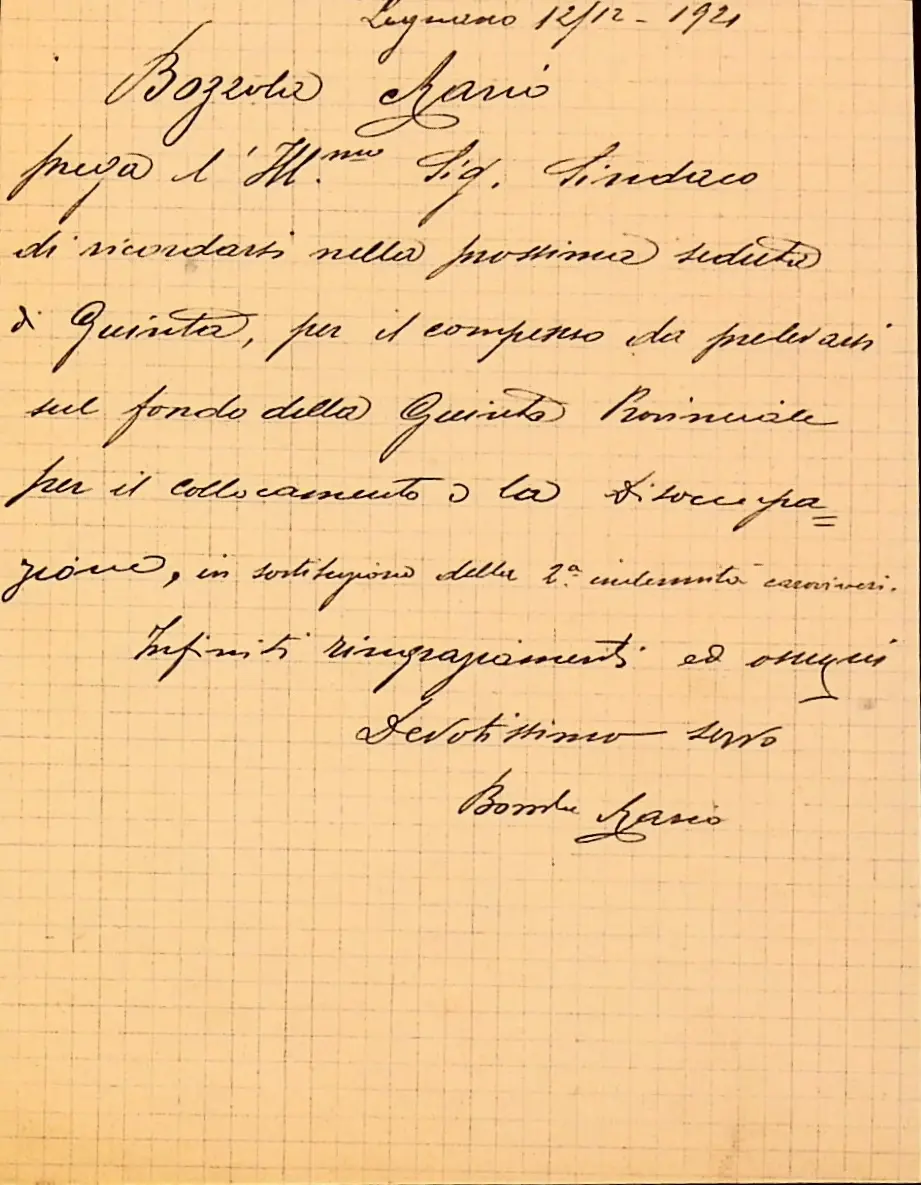 Legnano 12/12 - 1921
Bozzola Mario
prega l'Ill.mo Sig. Sindaco
di ricordarsi nella prossima seduta
di Giunta, per il compenso da prelevarsi
sul fondo della Giunta Provinciale
per il collocamento e la Disoccupa=
zione, in sostituzione della 2ª indennità caroviveri.
Infiniti ringraziamenti ed ossequi
Devotissimo servo
Mario